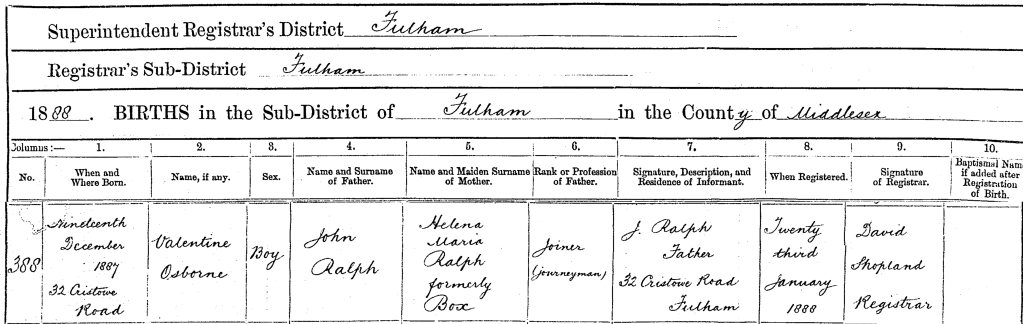 Superintendent Registrar's District Fulham
Registrar's Sub-District Fulham
1888. BIRTHS in the Sub-District of Fulham in the County of Middlesex
Columns:— 1. 2. 3. 4. 5. 6. 7. 8. 9. 10.
No. When and Where Born. Name, if any. Sex. Name and Surname of Father. Name and Maiden Surname of Mother. Rank or Profession of Father. Signature, Description, and Residence of Informant. When Registered. Signature of Registrar. Baptismal Name if added after Registration of Birth.
388
Nineteenth
December
1887
32 Cristowe
Road
Valentine
Osborne
Boy
John
Ralph
Helena
Maria
Ralph
formerly
Box
Joiner
(journeyman)
J. Ralph
Father
32 Cristowe Road
Fulham
Twenty
third
January
1888
David
Shopland
Registrar